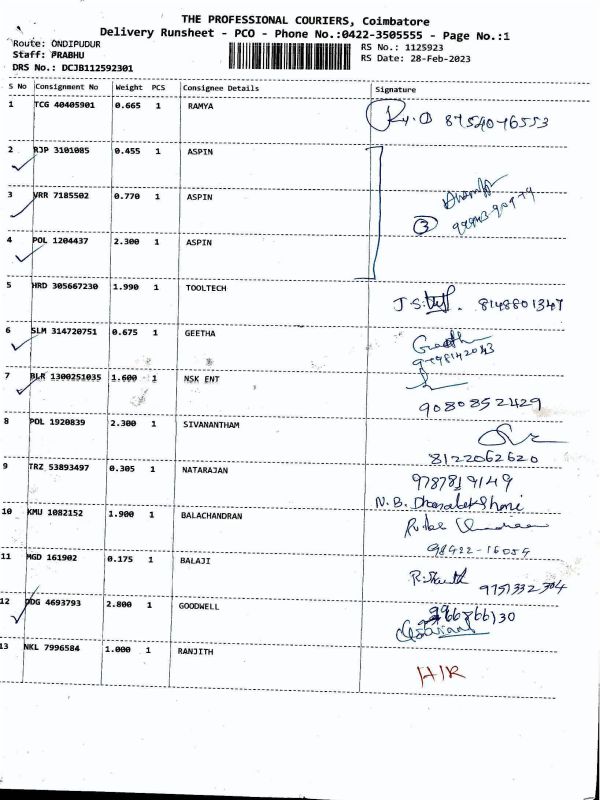 THE PROFESSIONAL COURIERS, Coimbatore
Delivery Runsheet - PCO - Phone No.:0422-3505555 - Page No.:1
Route: ONDIPUDUR
Staff: PRABHU
DRS No.: DCJB112592301
RS No.: 1125923
RS Date: 28-Feb-2023
S No Consignment No Weight PCS Consignee Details Signature
1 TCG 40405901 0.665 1 RAMYA
2 RJP 3101085 0.455 1 ASPIN
3 VRR 7185502 0.770 1 ASPIN
3
4 POL 1204437 2.300 1 ASPIN
5 HRD 305667230 1.990 1 TOOLTECH 8148801347
6 SLM 314720751 0.675 1 GEETHA
7 BLR 1300251035 1.600 1 NSK ENT
9080852429
8 POL 1920839 2.300 1 SIVANANTHAM
8122062620
9 TRZ 53893497 0.305 1 NATARAJAN
N.B.
10 KMU 1082152 1.900 1 BALACHANDRAN
11 MGD 161902 0.175 1 BALAJI
12 DDG 4693793 2.800 1 GOODWELL
13 NKL 7996584 1.000 1 RANJITH